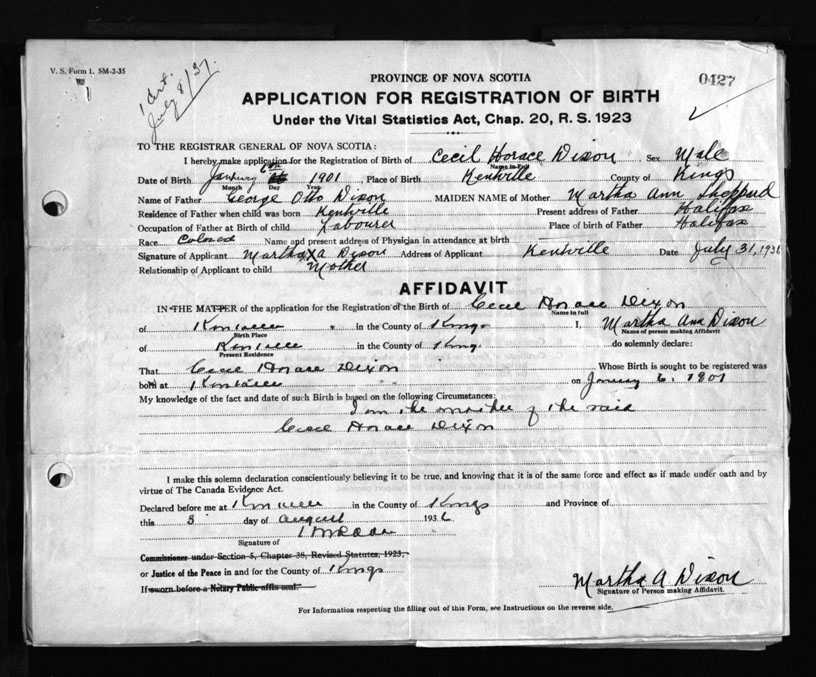 V. S. Form 1. 5M-2-35
July 8/37.
0427
PROVINCE OF NOVA SCOTIA
APPLICATION FOR REGISTRATION OF BIRTH
Under the Vital Statistics Act, Chap. 20, R. S. 1923
TO THE REGISTRAR GENERAL OF NOVA SCOTIA:
I hereby make application for the Registration of Birth of Cecil Horace Dixon, Sex Male
Name in Full
Date of Birth January 6th 1901 Place of Birth Kentville County of Kings
Month Day Year
Name of Father George Otto Dixon MAIDEN NAME of Mother Martha Ann Sheppard
Residence of Father when child was born Kentville Present address of Father Halifax
Occupation of Father at Birth of child Labourer Place of birth of Father Halifax
Race Colored Name and present address of Physician in attendance at birth
Signature of Applicant Martha X A Dixon Address of Applicant Kentville Date July 31, 1936
Relationship of Applicant to child Mother
AFFIDAVIT
IN THE MATTER of the application for the Registration of the Birth of Cecil Horace Dixon
Name in full
of Kentville in the County of Kings I, Martha Ann Dixon
Birth Place Name of person making Affidavit
of Kentville in the County of Kings do solemnly declare:
Present Residence
That Cecil Horace Dixon Whose Birth is sought to be registered was
born at Kentville on January 6. 1901
My knowledge of the fact and date of such Birth is based on the following Circumstances:
I am the mother of the said
Cecil Horace Dixon
I make this solemn declaration conscientiously believing it to be true, and knowing that it is of the same force and effect as if made under oath and by
virtue of The Canada Evidence Act.
Declared before me at Kentville in the County of Kings and Province of
this 3 day of August 1936
Signature of
Commissioner under Section 5, Chapter 38, Revised Statutes, 1923,
or Justice of the Peace in and for the County of Kings
If sworn before a Notary Public affix seal
Martha A Dixon
Signature of Person making Affidavit.
For Information respecting the filling out of this Form, see Instructions on the reverse side.